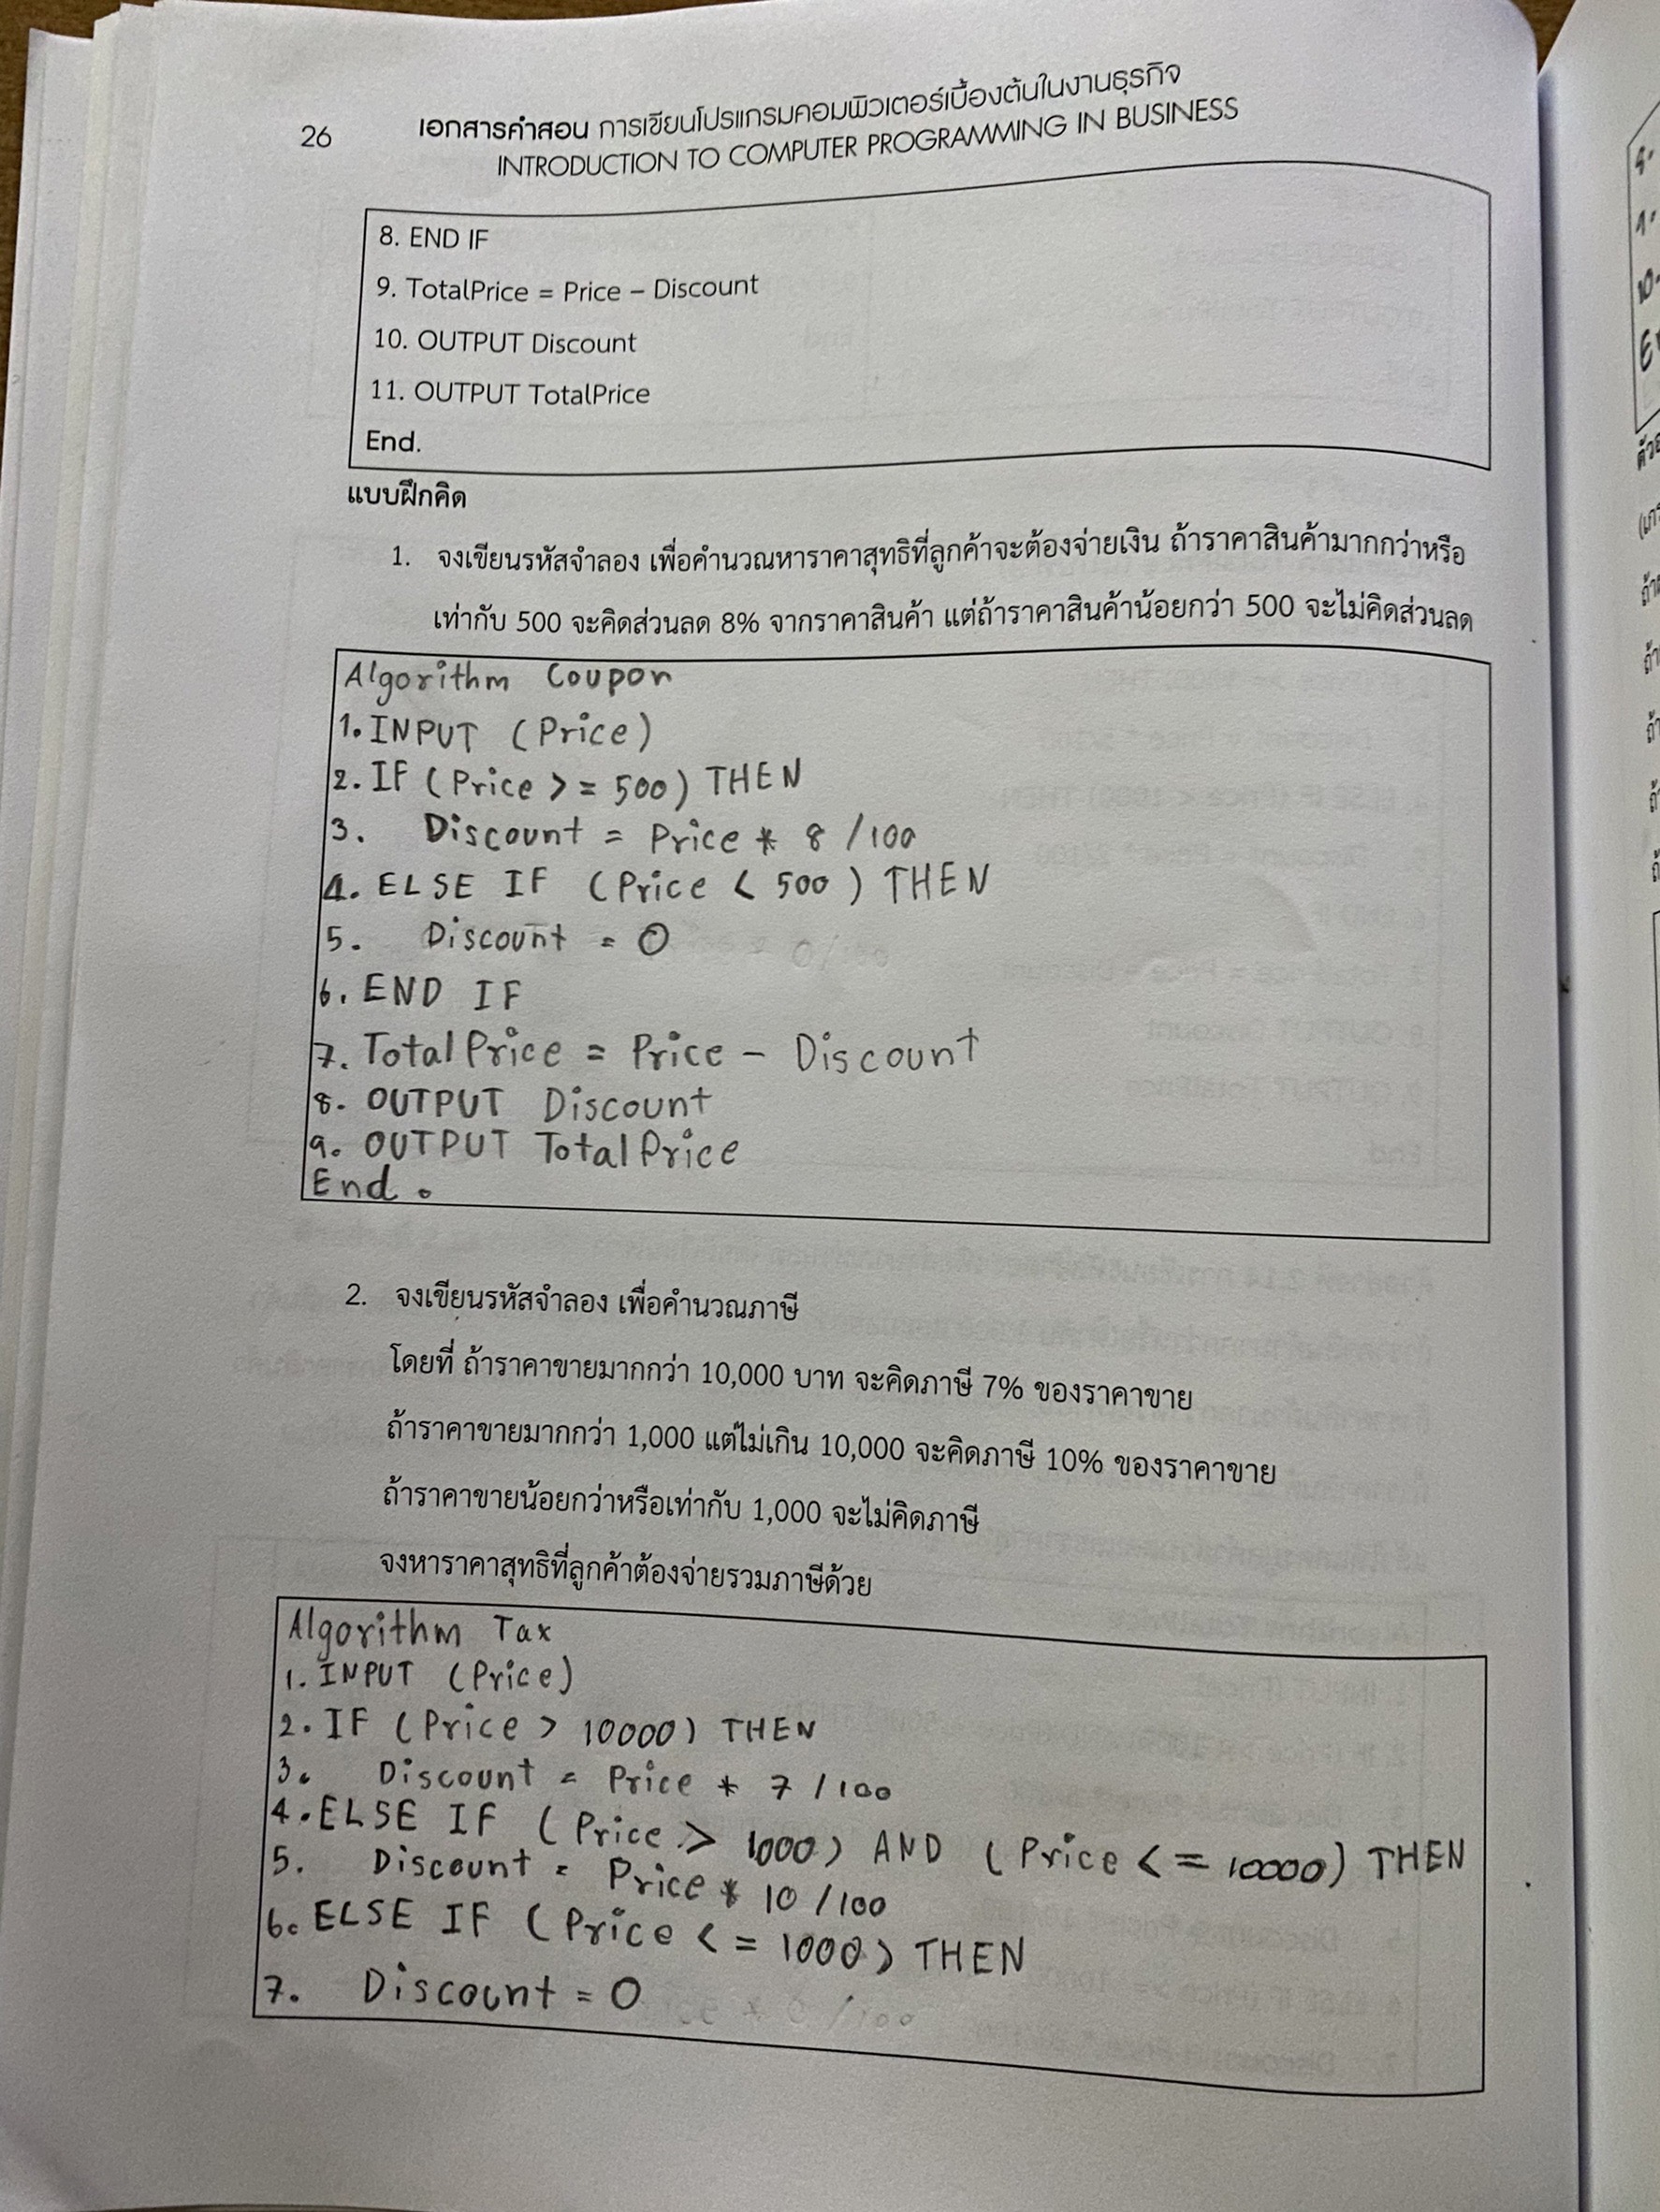 26
เอกสารคำสอน การเขียนโปรแกรมคอมพิวเตอร์เบื้องต้นในงานธุรกิจ
INTRODUCTION TO COMPUTER PROGRAMMING IN BUSINESS
8. END IF
9. TotalPrice = Price – Discount
10. OUTPUT Discount
11. OUTPUT TotalPrice
End.
แบบฝึกคิด
1. จงเขียนรหัสจำลอง เพื่อคำนวณหาราคาสุทธิที่ลูกค้าจะต้องจ่ายเงิน ถ้าราคาสินค้ามากกว่าหรือ
เท่ากับ 500 จะคิดส่วนลด 8% จากราคาสินค้า แต่ถ้าราคาสินค้าน้อยกว่า 500 จะไม่คิดส่วนลด
Algorithm Coupon
1. INPUT (Price)
2. IF (Price >= 500) THEN
3. Discount = Price * 8 /100
4. ELSE IF (Price < 500) THEN
5. Discount = 0
6. END IF
7. TotalPrice = Price - Discount
8. OUTPUT Discount
9. OUTPUT TotalPrice
End.
2. จงเขียนรหัสจำลอง เพื่อคำนวณภาษี
โดยที่ ถ้าราคาขายมากกว่า 10,000 บาท จะคิดภาษี 7% ของราคาขาย
ถ้าราคาขายมากกว่า 1,000 แต่ไม่เกิน 10,000 จะคิดภาษี 10% ของราคาขาย
ถ้าราคาขายน้อยกว่าหรือเท่ากับ 1,000 จะไม่คิดภาษี
จงหาราคาสุทธิที่ลูกค้าต้องจ่ายรวมภาษีด้วย
Algorithm Tax
1. INPUT (Price)
2. IF (Price > 10000) THEN
3. Discount = Price * 7 / 100
4. ELSE IF (Price > 1000) AND (Price <= 10000) THEN
5. Discount = Price * 10 / 100
6. ELSE IF (Price <= 1000) THEN
7. Discount = 0